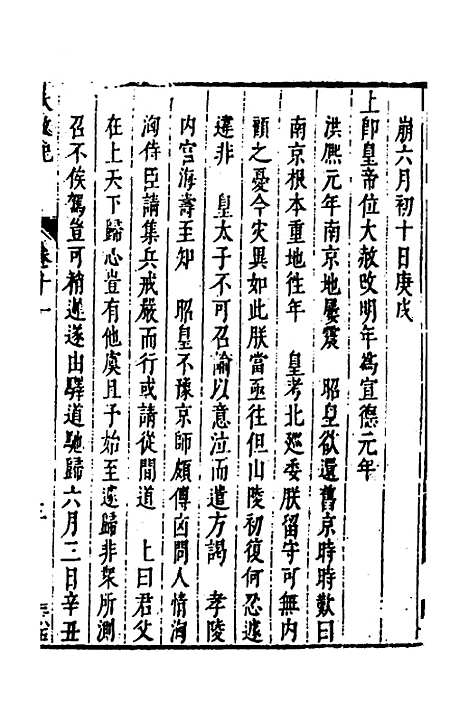 崩六月初十日庚戌
上卽皇帝位大赦改明年爲宣德元年
洪熙元年南京地屢震　昭皇欲還舊京時時歎曰
南京根本重地往年　皇考北廵委朕留守可無內
顧之憂今灾異如此朕當亟往但山陵初復何忍遽
違非　皇太子不可召諭以意泣而遣方謁　孝陵
內宫海壽至知　昭皇不豫京師頗傳凶問人情洶
洶侍臣請集兵戒嚴而行或請從間道　上曰君父
在上天下歸心豈有他虞且予始至遽歸非衆所測
召不俟駕豈可稍遲遂由驛道馳歸六月三日辛丑
卷十一
三